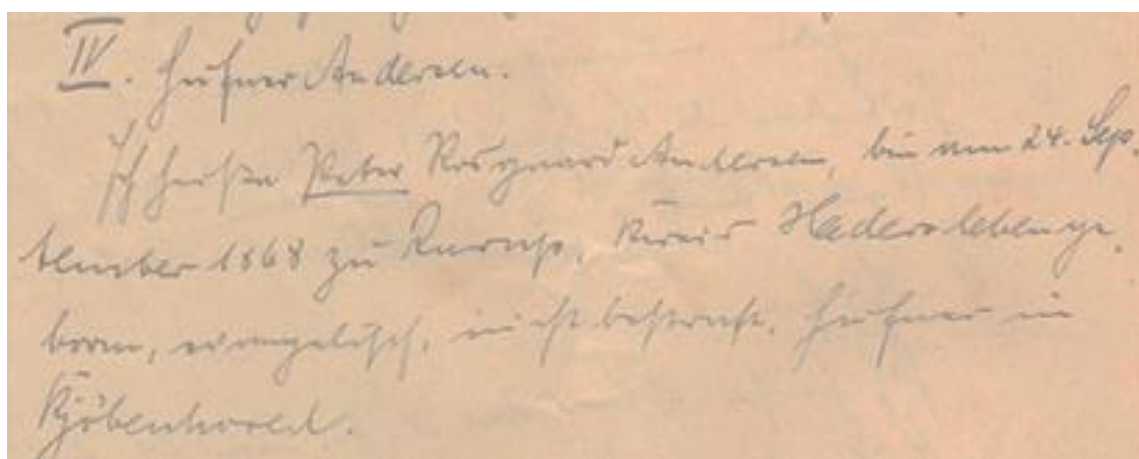 IV. Hufner Andersen.
Ich heiße Peter Andersen, bin am 24. Sep-
tember 1868 zu Kreis Hadersleben ge-
boren, evangelisch, nicht bestraft. Hufner in